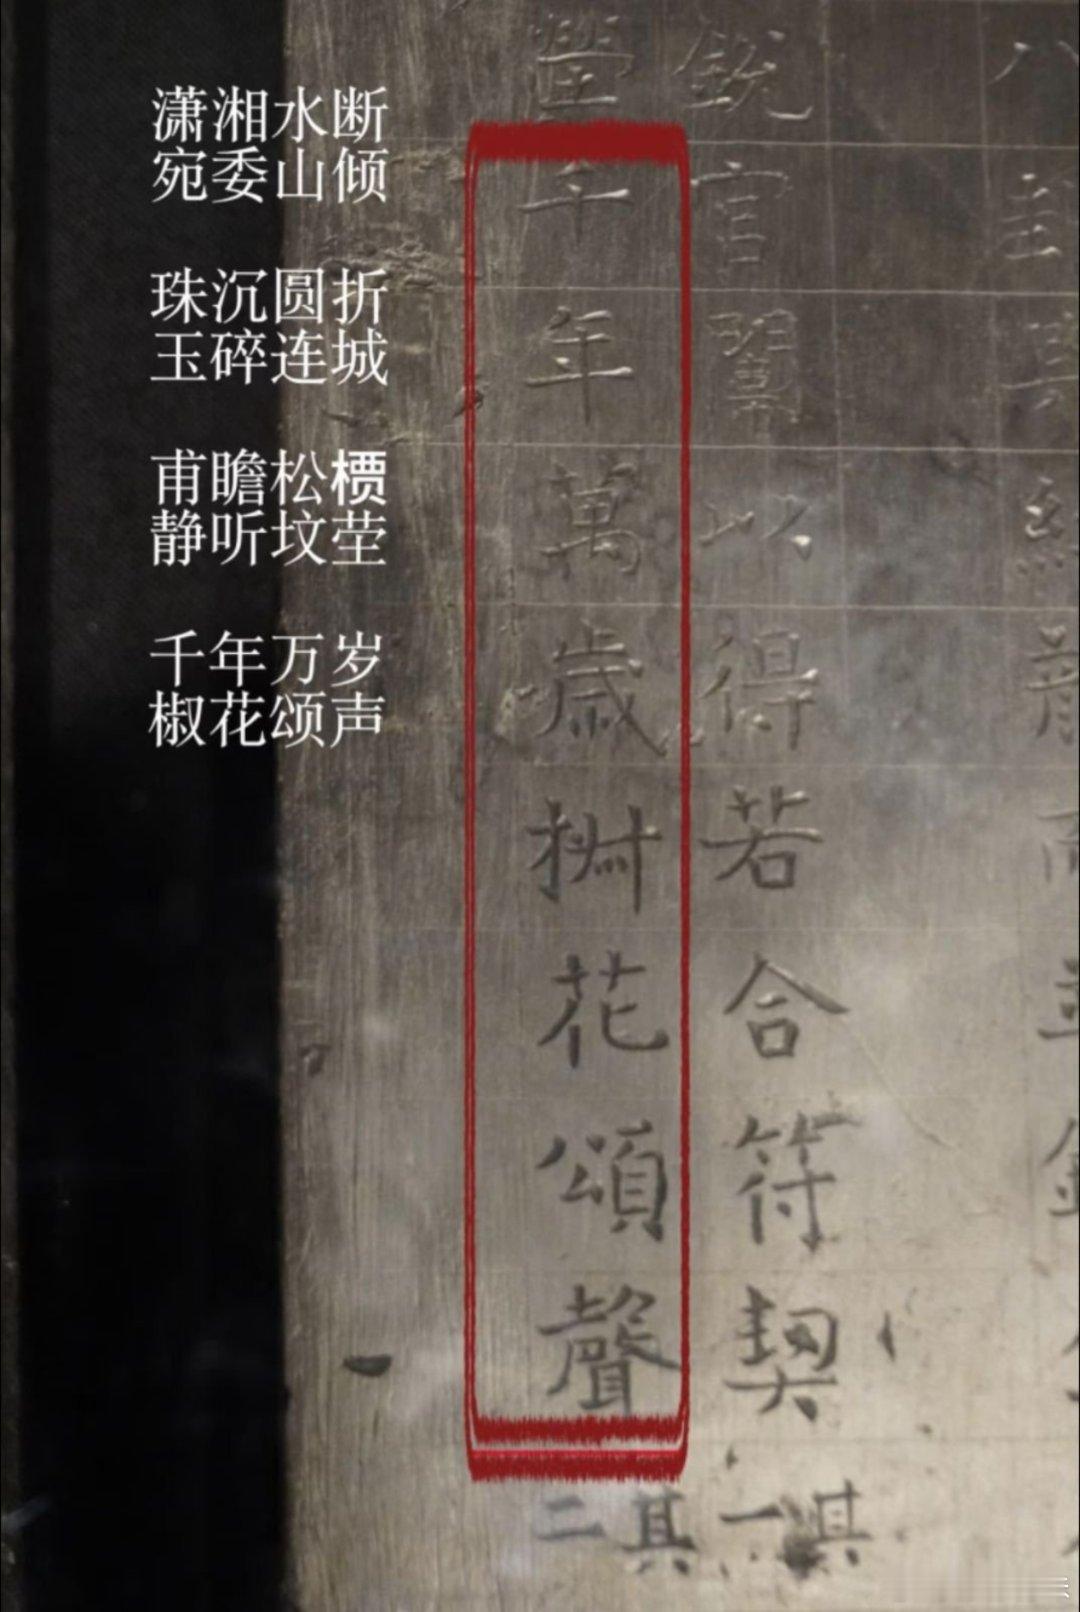 潇湘水断
宛委山倾
珠沉圆折
玉碎连城
甫瞻松槚
静听坟茔
千年万岁
椒花颂声
銳官閣以得若合符契其一
塋千年萬歲椒花頌聲其二